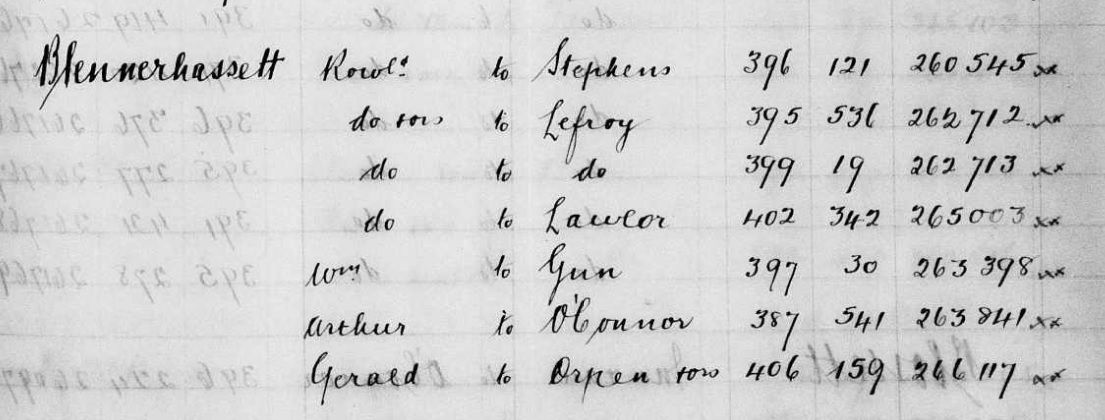 Blennerhassett Rowld to Stephens 396 121 260545 xx
do & ors to Lefroy 395 536 262712 xx
do to do 399 19 262713 xx
do to Lawlor 402 342 265003 xx
Wm to Gun 397 30 263398 xx
Arthur to O'Connor 387 541 263841 xx
Gerald to Orpen & ors 406 159 266117 xx